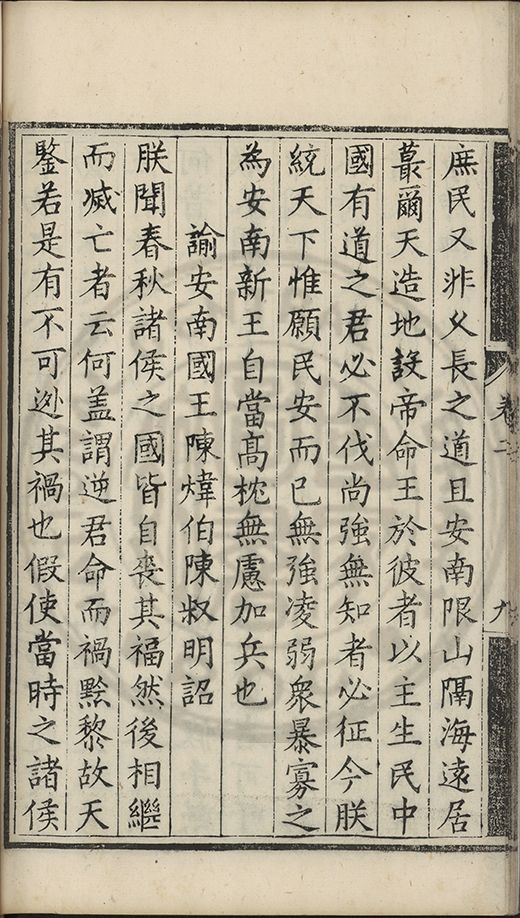 庶民又非父長之道且安南限山隔海遠居
蕞爾天造地設帝命王於彼者以主生民中
國有道之君必不伐尚強無知者必征今朕
統天下惟願民安而已無強凌弱衆暴寡之
為安南新王自當高枕無慮加兵也
諭安南國王陳煒伯陳叔明詔
朕聞春秋諸侯之國皆自喪其福然後相繼
而滅亡者云何盖謂逆君命而禍黔黎故天
鑒若是有不可逃其禍也假使當時之諸侯
卷二
九